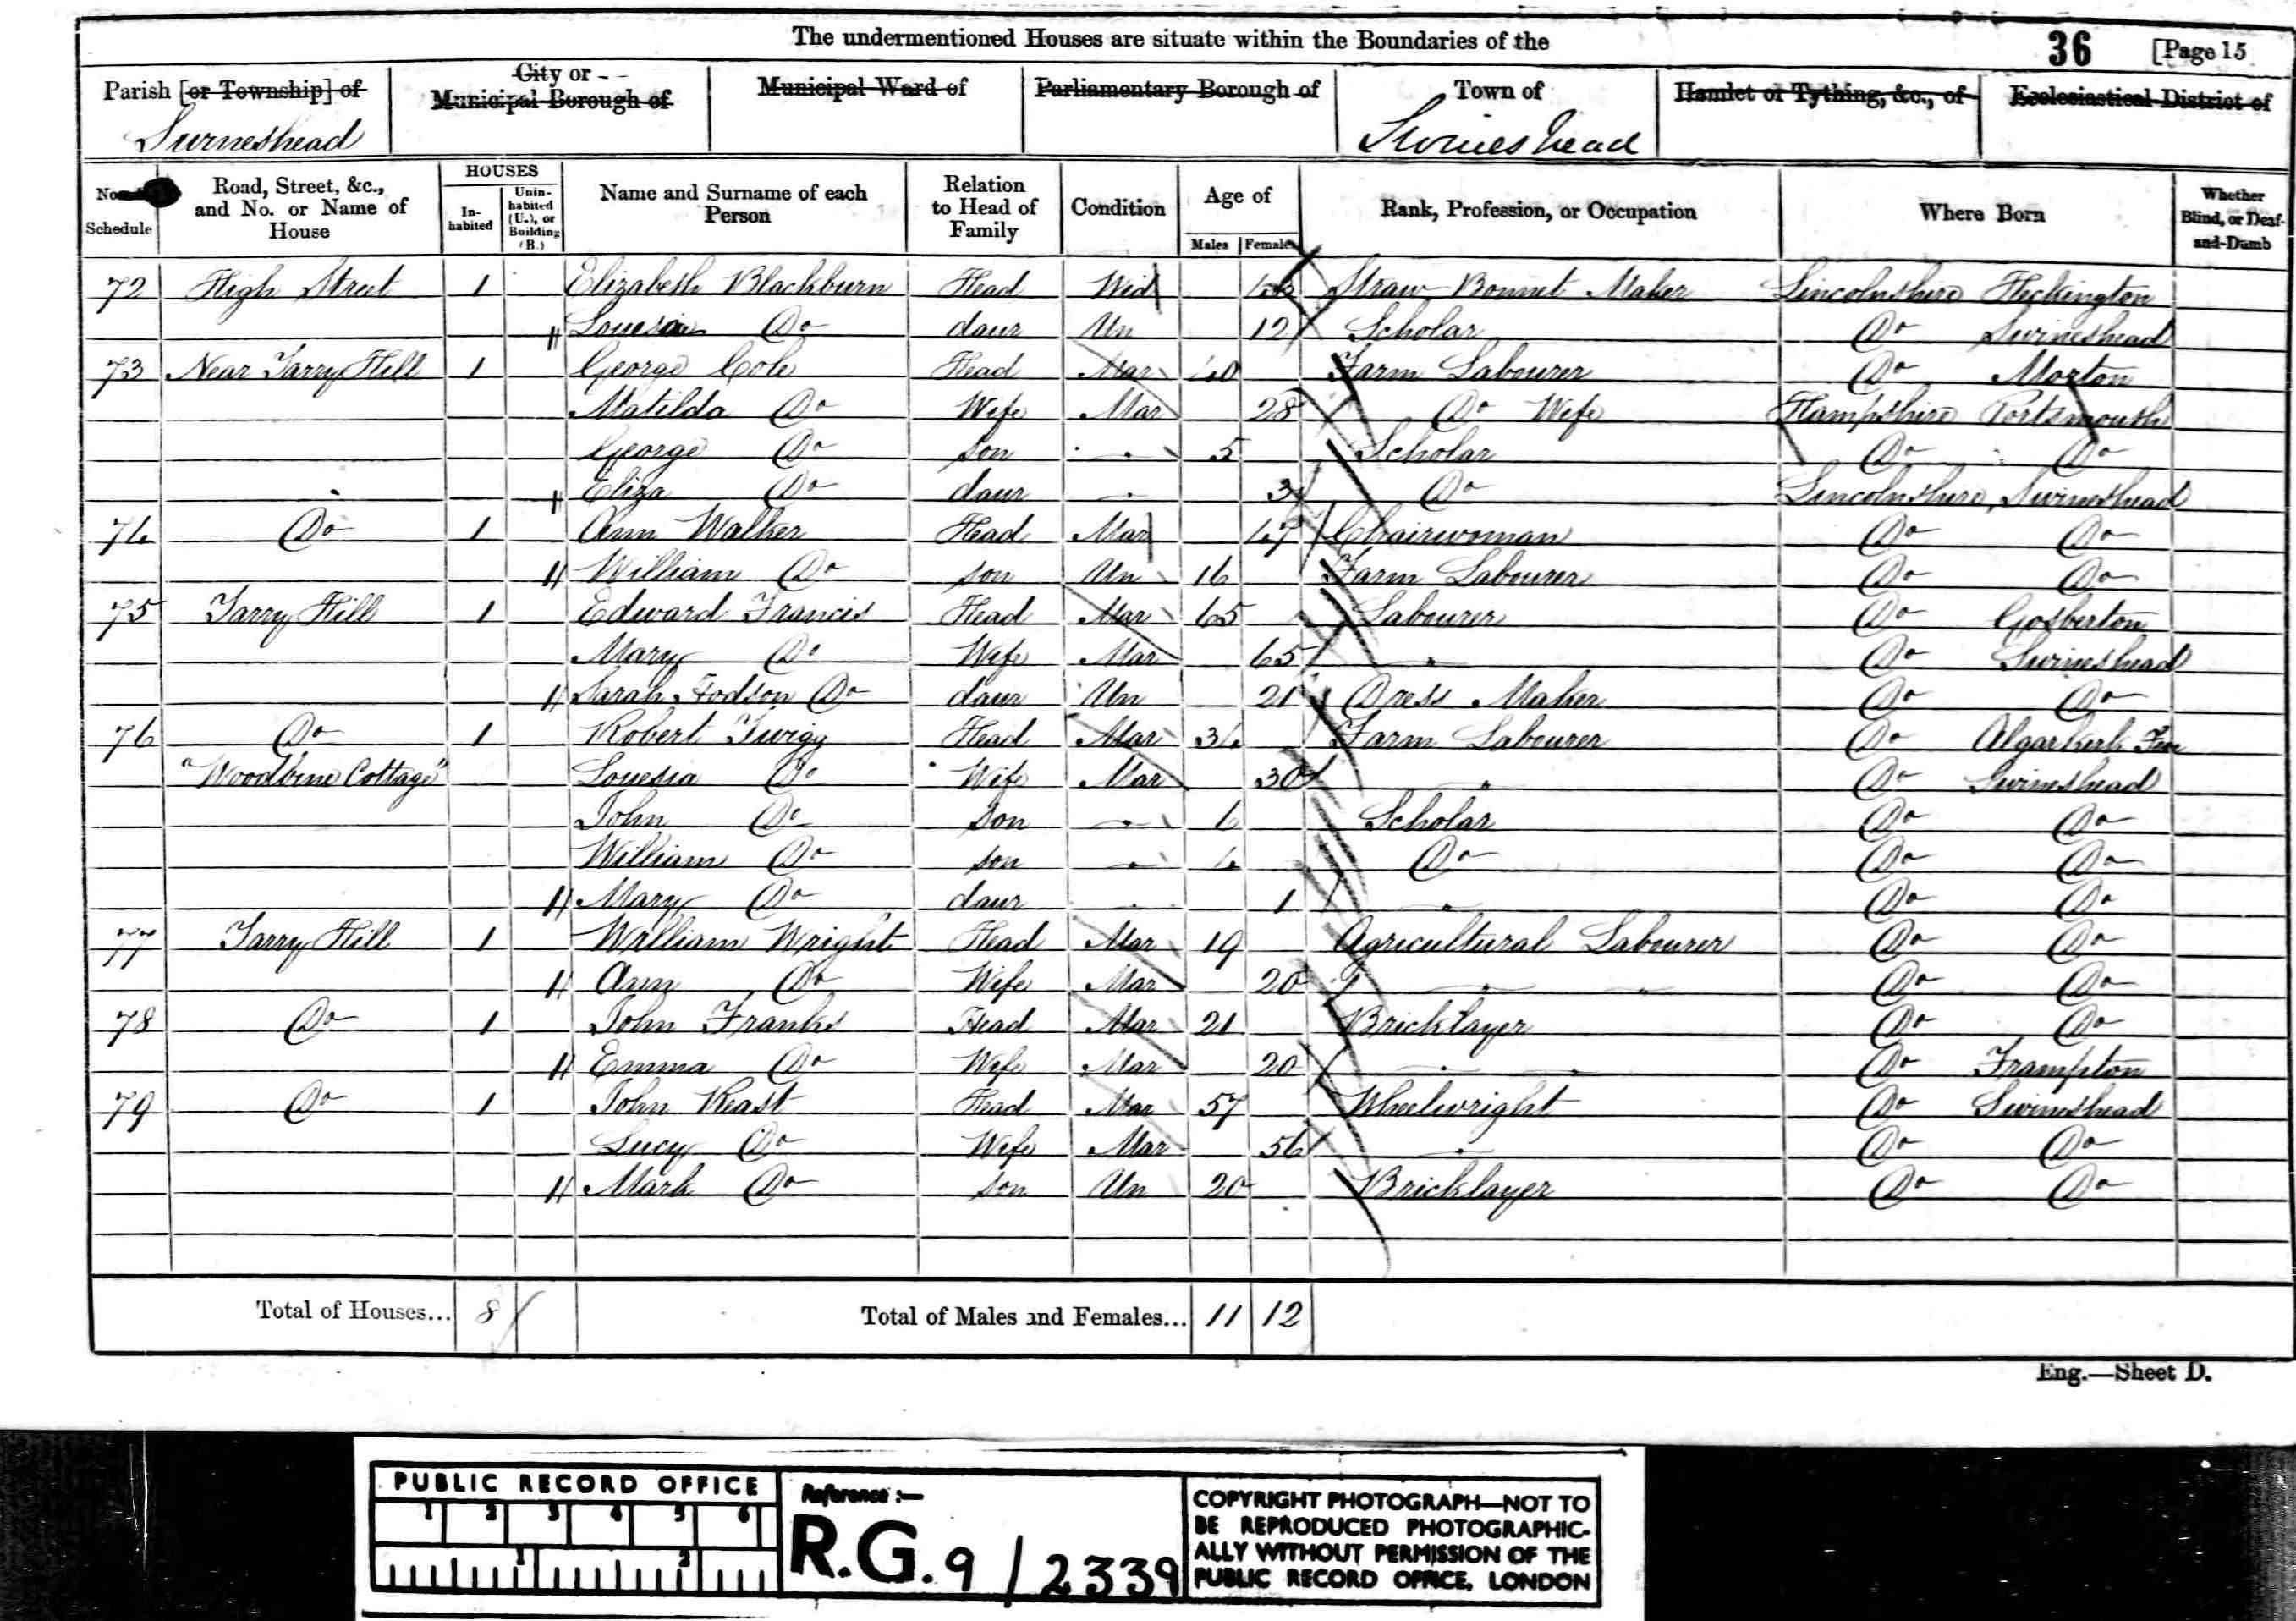 The undermentioned Houses are situate within the Boundaries of the
36 [Page 15
Parish [or Township] of Swineshead
City or Municipal Borough of
Municipal Ward of
Parliamentary Borough of
Town of Swineshead
Hamlet or Tything, &c., of
Ecclesiastical District of
No. Schedule
Road, Street, &c., and No. or Name of House
HOUSES
Inhabited
Uninhabited (U.), or Building (B.)
Name and Surname of each Person
Relation to Head of Family
Condition
Age of
Males Females
Rank, Profession, or Occupation
Where Born
Whether Blind, or Deaf-and-Dumb
72 High Street 1 Elizabeth Blackburn Head Wid Straw Bonnet Maker Lincolnshire Heckington
Louesia Do daur Un 12 Scholar Do Swineshead
73 Near Tarry Hill 1 George Cole Head Mar 40 Farm Labourer Do Morton
Matilda Do Wife Mar 28 Do Wife Hampshire Portsmouth
George Do son 5 Scholar Do Do
Eliza Do daur 3 Do Lincolnshire Swineshead
74 Do 1 Ann Walker Head Mar 47 Chairwoman Do Do
William Do son Un 16 Farm Labourer Do Do
75 Tarry Hill 1 Edward Francis Head Mar 65 Labourer Do Gosberton
Mary Do Wife Mar 65 " Do Swineshead
Sarah Hodson Do daur Un 21 Dress Maker Do Do
76 Do 1 Robert Twigg Head Mar 34 Farm Labourer Do Algarkirk Fen
"Woodbine Cottage" Louesia Do Wife Mar 30 " Do Swineshead
John Do son 6 Scholar Do Do
William Do son 4 Do Do Do
Mary Do daur 1 " Do Do
77 Tarry Hill 1 William Wright Head Mar 19 Agricultural Labourer Do Do
Ann Do Wife Mar 20 " " Do Do
78 Do 1 John Franks Head Mar 21 Bricklayer Do Do
Emma Do Wife Mar 20 " Do Frampton
79 Do 1 John Keast Head Mar 57 Wheelwright Do Swineshead
Lucy Do Wife Mar 56 " Do Do
Mark Do son Un 20 Bricklayer Do Do
Total of Houses... 8
Total of Males and Females... 11 12
Eng.—Sheet D.
PUBLIC RECORD OFFICE
1 2 3 4 5 6
1 2
Reference :—
R.G. 9 / 2339
COPYRIGHT PHOTOGRAPH—NOT TO
BE REPRODUCED PHOTOGRAPHIC-
ALLY WITHOUT PERMISSION OF THE
PUBLIC RECORD OFFICE, LONDON